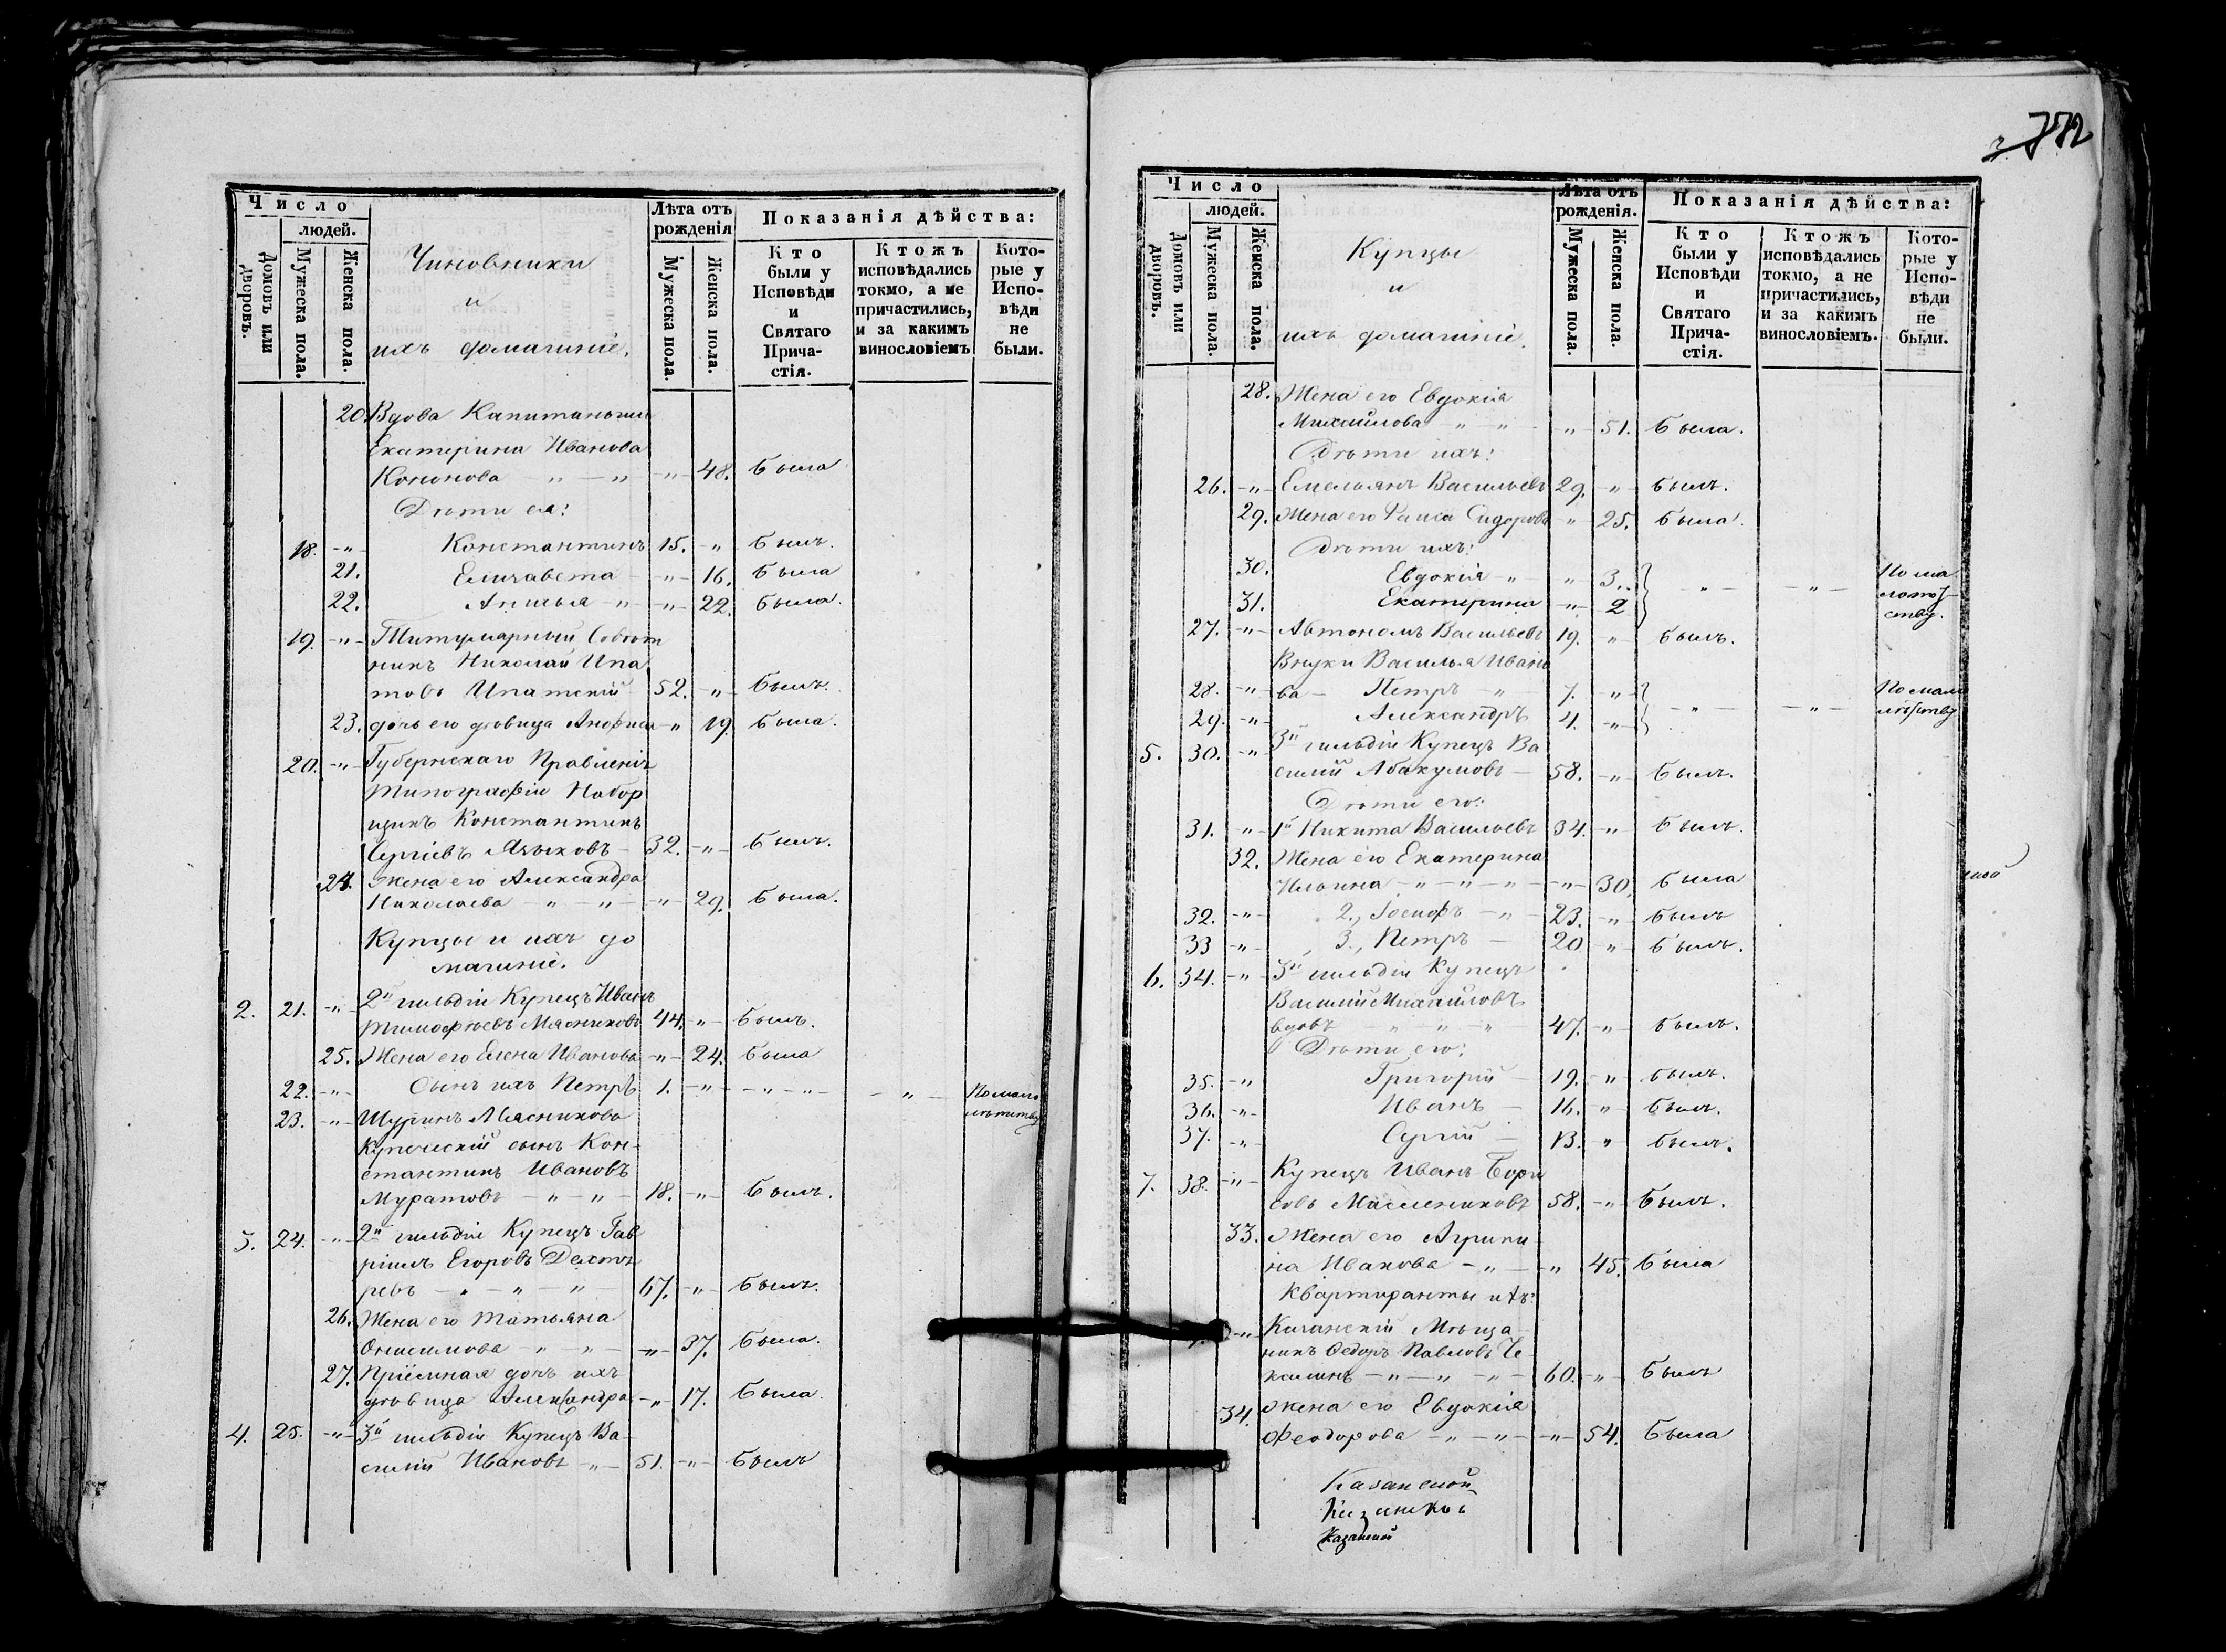 Число
людей.
Домовъ или дворовъ.
Мужеска пола.
Женска пола.
Чиновники
и
ихъ домашніе.
Лѣта отъ рожденія
Мужеска пола.
Женска пола.
Показанія дѣйства:
Кто были у Исповѣди и Святаго Прича- стія.
Ктожъ исповѣдались токмо, а не причастились, и за какимъ винословіемъ
Кото- рые у Испо- вѣди не были.
20. Вдова Капитаньша
Екатерина Иванова
Кононова -"- -"- -"- 48. была
Дѣти ея:
18. -"- Константинъ 15. -"- былъ.
21. Елизавета -"- 16. была
22. -"- -"- 22. была.
19. -"- Титулярный Совѣт
никъ Николай Ипа
товъ Ипатскій 52. -"- былъ.
23. дочь его дѣвица Анфиса -"- 19 была.
20. -"- Губернскаго Правленія
Типографіи Набор
щикъ Константинъ
Сергіевъ Языковъ 32. -"- былъ.
24. Жена его Александра
Николаева -"- -"- -"- 29. была.
Купцы и ихъ до
машніе.
2. 21. -"- 2й гильдіи Купецъ Иванъ
Тимофѣевъ Мясниковъ 44. -"- былъ.
25. Жена его Елена Иванова -"- 24. была
22. -"- Сынъ ихъ Петръ 1. -"- -"- -"- -"- По мало
лѣтству
23. -"- Шуринъ Мясникова
Купеческій сынъ Кон-
стантинъ Ивановъ
Муратовъ -"- -"- 18. -"- былъ.
3. 24. -"- 2й гильдіи Купецъ Гав
ріилъ Егоровъ Дехтя
ревъ -"- -"- -"- 67. -"- былъ.
26. Жена его Татьяна
Онисимова -"- -"- -"- 37. была.
27. Пріемная дочь ихъ
дѣвица Александра -"- 17. была.
4. 25. -"- 3й гильдіи Купецъ Ва-
силій Ивановъ -"- 51. -"- былъ
Число
людей.
Домовъ или дворовъ.
Мужеска пола.
Женска пола.
Купцы
и
ихъ домашніе.
Лѣта отъ рожденія.
Мужеска пола.
Женска пола.
Показанія дѣйства:
Кто были у Исповѣди и Святаго Прича- стія.
Ктожъ исповѣдались токмо, а не причастились, и за какимъ винословіемъ.
Кото- рые у Испо- вѣди не были.
28. Жена его Евдокія
Михайлова -"- -"- -"- 51. была.
Дѣти ихъ:
26. -"- Емельянъ Васильевъ 29. -"- былъ.
29. Жена его Раиса Сидорова -"- 25. была.
Дѣти ихъ:
30. Евдокія -"- -"- 3. По ма
31. Екатерина -"- 2 -"- -"- лолѣт
ству.
27. -"- Автономъ Васильевъ 19. -"- былъ.
Внуки Василья Ивано
28. -"- ва - Петръ -"- 7. -"- По мало
29. -"- Александръ 4. -"- -"- -"- лѣтству
5. 30. -"- 3й гильдіи Купецъ Ва
силій Абакумовъ 58. -"- былъ.
Дѣти его:
31. -"- 1й Никита Васильевъ 34. -"- былъ.
32. Жена его Екатерина
Ильина -"- -"- -"- -"- 30. была
32. -"- 2., Іосифъ -"- 23. -"- былъ
33 -"- 3., Петръ - 20 -"- былъ.
6. 34. -"- 3й гильдіи Купецъ
Василій Михайловъ
вдовъ -"- -"- -"- 47. -"- былъ.
Дѣти его:
35. -"- Григорій - 19. -"- былъ.
36. -"- Иванъ - 16. -"- былъ.
37. -"- Сергій - 13. -"- былъ.
7. 38. -"- Купецъ Иванъ Бори
совъ Масленниковъ 58. -"- былъ.
33. Жена его Агрипи
на Иванова -"- -"- 45. была
Квартиранты ихъ:
-"- Казанскій Мѣща
нинъ Ѳедоръ Павловъ Че
калинъ -"- -"- -"- 60. -"- былъ
34. Жена его Евдокія
Феодорова -"- -"- -"- 54. была
Казанской
Казанской